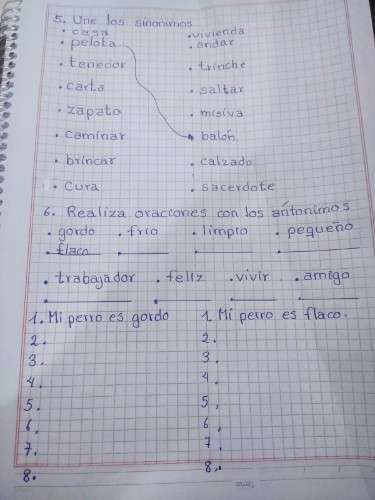 5. Une los sinonimos
. casa .vivienda
. pelota .andar
. tenedor . trinche
. carta . saltar
. zapato . misiva
. caminar . balón.
. brincar . calzado
. cura . sacerdote
6. Realiza oraciones con los ántonimos
. gordo . frío . limpio . pequeño
. flaco
. trabajador . feliz . vivir . amigo
1. Mi perro es gordo 1. Mi perro es flaco.
2. 2.
3. 3.
4. 4.
5. 5.
6. 6.
7. 7.
8. 8.